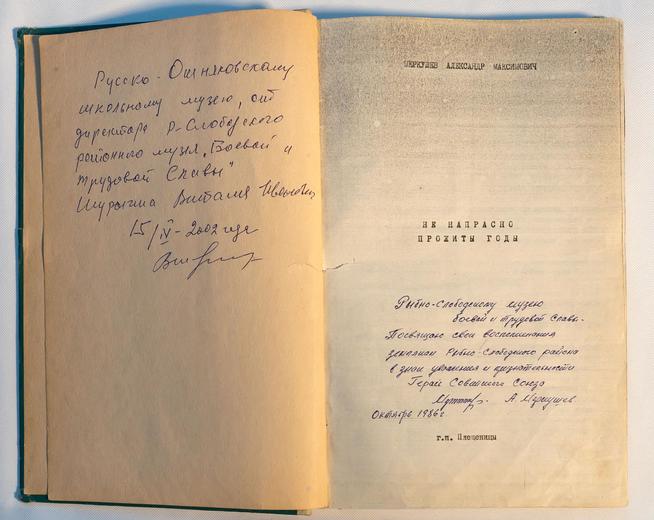 Русско-Ошняковскому
школьному музею, от
директора Р-Слободского
районного музея „Боевой и
трудовой Славы"
Шурыгина Виталия Ивановича
15/IV-2002 года
МЕРКУШЕВ АЛЕКСАНДР МАКСИМОВИЧ
НЕ НАПРАСНО
ПРОЖИТЫ ГОДЫ
Рыбно-Слободскому музею
боевой и трудовой Славы.
Посвящаю свои воспоминания
землякам Рыбно-Слободского района
в знак уважения и признательности
Герой Советского Союза
А. Меркушев
Октябрь 1986 г.
г.п. Плещеницы